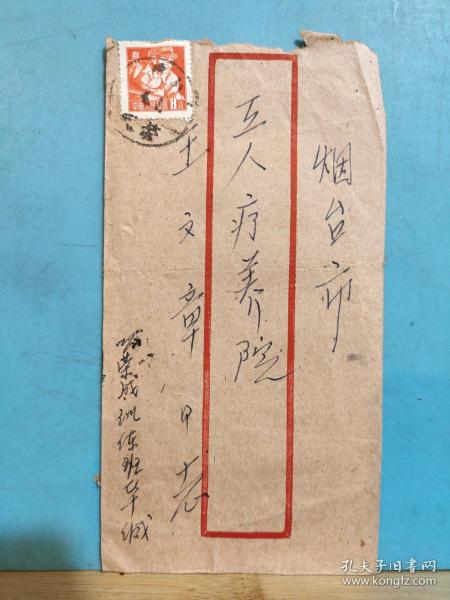 烟台市
工人疗养院
王文章同志
荣成训练班毕缄
8分
孔夫子旧书网
www.kongfz.com